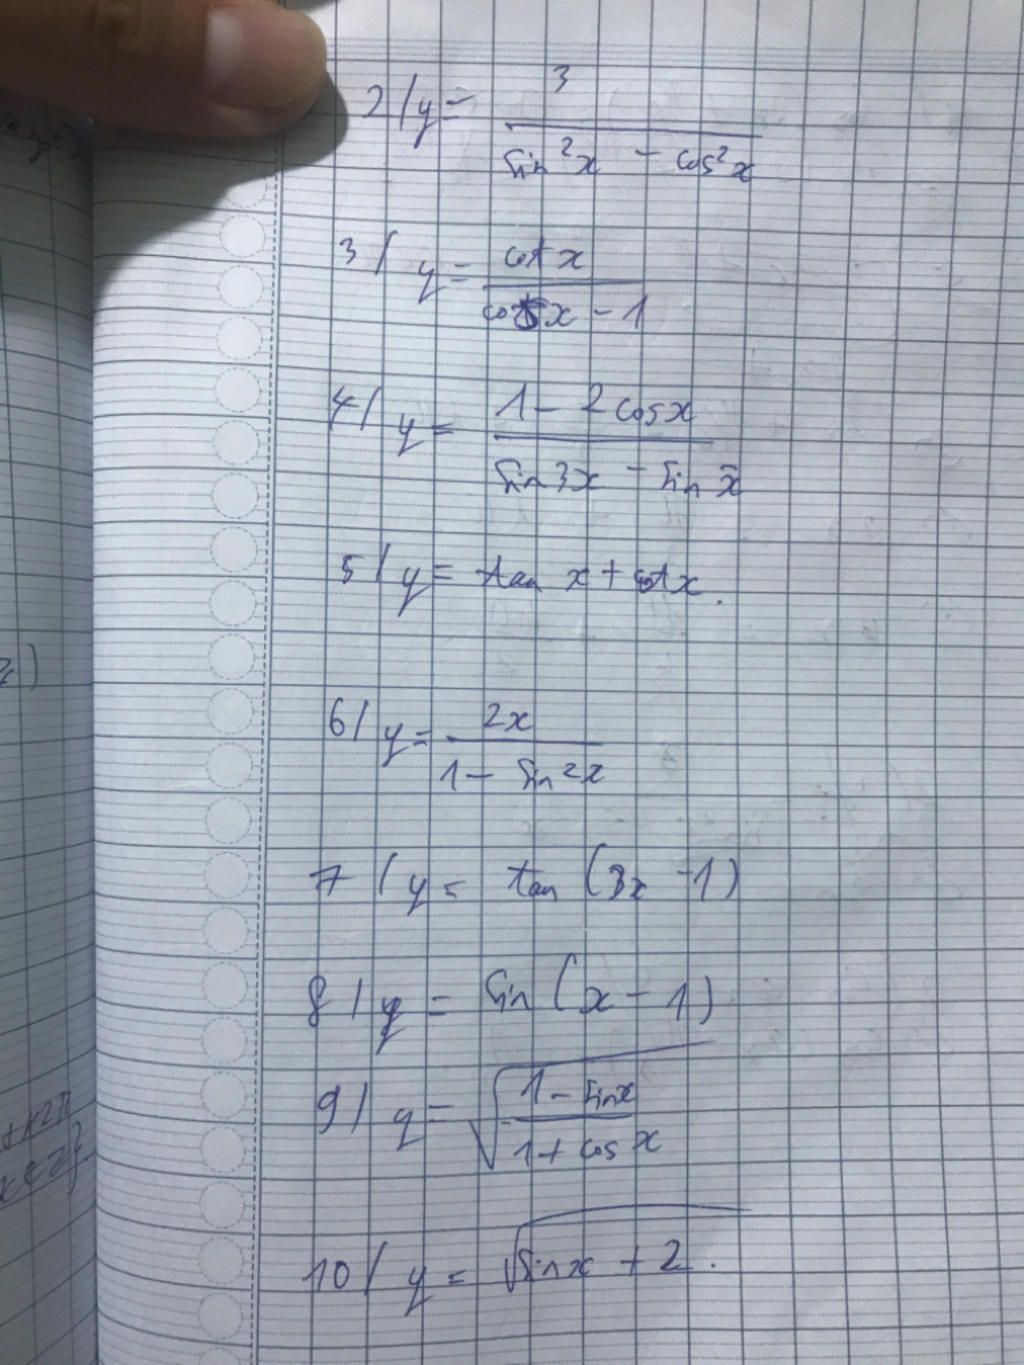 2/ y = 3 / (sin²x - cos²x)
3/ y = cot x / (cosx - 1)
4/ y = (1 - 2cosx) / (sin3x - sin x)
5/ y = tan x + cot x.
6/ y = 2x / (1 - sin2x)
7/ y = tan (3x - 1)
8/ y = sin (x - 1)
9/ y = √((1 - sinx) / (1 + cosx))
10/ y = √(sinx + 2).